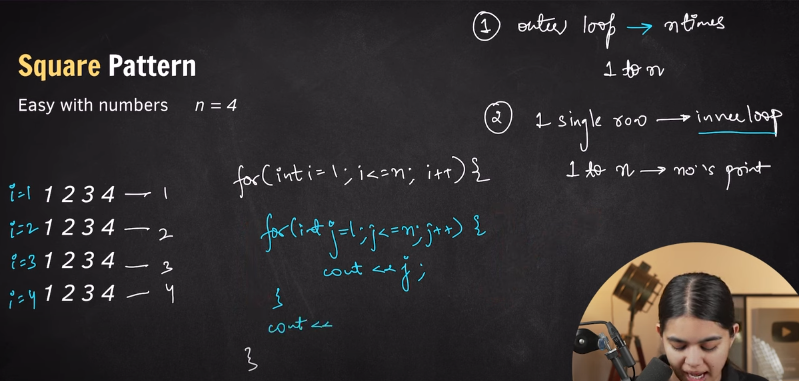 Square Pattern
Easy with numbers n = 4
i=1 1 2 3 4 — 1
i=2 1 2 3 4 — 2
i=3 1 2 3 4 — 3
i=4 1 2 3 4 — 4
for(int i=1; i<=n; i++) {
for(int j=1; j<=n; j++) {
cout << j;
}
cout <<
}
1 outer loop → n times
1 to n
2 1 single row → inner loop
1 to n → no's print